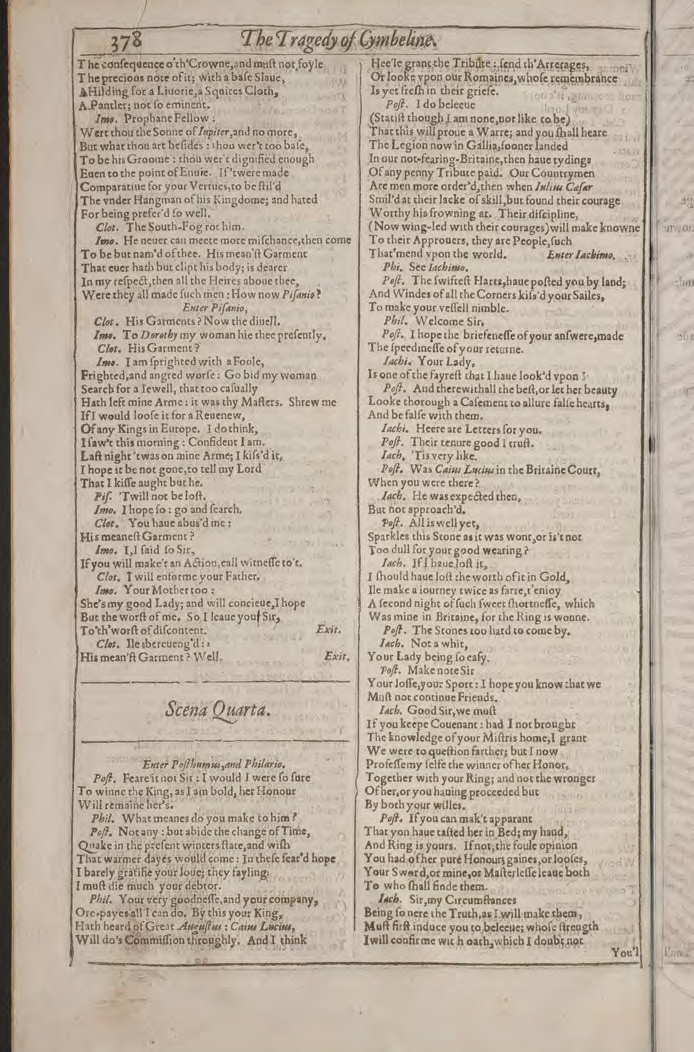 378
The Tragedy of Cymbeline.
The consequence o'th'Crowne, and must not foyle
The precious note of it; with a base Slaue,
A Hilding for a Liuorie, a Squires Cloth,
A Pantler; not so eminent.
Imo. Prophane Fellow:
Wert thou the Sonne of Iupiter, and no more,
But what thou art besides: thou wer't too base,
To be his Groome: thou wer't dignified enough
Euen to the point of Enuie. If 'twere made
Comparatiue for your Vertues, to be stil'd
The vnder Hangman of his Kingdome; and hated
For being prefer'd so well.
Clot. The South-Fog rot him.
Imo. He neuer can meete more mischance, then come
To be but nam'd of thee. His mean'st Garment
That euer hath but clipt his body; is dearer
In my respect, then all the Heires aboue thee,
Were they all made such men: How now Pisanio?
Enter Pisanio,
Clot. His Garments? Now the diuell.
Imo. To Dorothy my woman hie thee presently.
Clot. His Garment?
Imo. I am sprighted with a Foole,
Frighted, and angred worse: Go bid my woman
Search for a Iewell, that too casually
Hath left mine Arme: it was thy Masters. Shrew me
If I would loose it for a Reuenew,
Of any Kings in Europe. I do think,
I saw't this morning: Confident I am.
Last night 'twas on mine Arme; I kiss'd it,
I hope it be not gone, to tell my Lord
That I kisse aught but he.
Pis. 'Twill not be lost.
Imo. I hope so: go and search.
Clot. You haue abus'd me:
His meanest Garment?
Imo. I, I said so Sir,
If you will make't an Action, call witnesse to't.
Clot. I will enforme your Father.
Imo. Your Mother too:
She's my good Lady; and will concieue, I hope
But the worst of me. So I leaue you Sir,
To'th'worst of discontent. Exit.
Clot. Ile be reueng'd:
His mean'st Garment? Well. Exit.
Scena Quarta.
Enter Posthumus, and Philario.
Post. Feare it not Sir: I would I were so sure
To winne the King, as I am bold, her Honour
Will remaine her's.
Phil. What meanes do you make to him?
Post. Not any: but abide the change of Time,
Quake in the present winters state, and wish
That warmer dayes would come: In these fear'd hope
I barely gratifie your loue; they fayling
I must die much your debtor.
Phil. Your very goodnesse, and your company,
Ore-payes all I can do. By this your King,
Hath heard of Great Augustus: Caius Lucius,
Will do's Commission throughly. And I think
Hee'le grant the Tribute: send th'Arrerages,
Or looke vpon our Romaines, whose remembrance
Is yet fresh in their griefe.
Post. I do beleeue
(Statist though I am none, nor like to be)
That this will proue a Warre; and you shall heare
The Legion now in Gallia, sooner landed
In our not-fearing-Britaine, then haue tydings
Of any penny Tribute paid. Our Countrymen
Are men more order'd, then when Iulius Cæsar
Smil'd at their lacke of skill, but found their courage
Worthy his frowning at. Their discipline,
(Now wing-led with their courages) will make knowne
To their Approuers, they are People, such
That mend vpon the world. Enter Iachimo.
Phi. See Iachimo.
Post. The swiftest Harts, haue posted you by land;
And Windes of all the Corners kiss'd your Sailes,
To make your vessell nimble.
Phil. Welcome Sir,
Post. I hope the briefenesse of your answere, made
The speedinesse of your returne.
Iachi. Your Lady,
Is one of the fayrest that I haue look'd vpon
Post. And therewithall the best, or let her beauty
Looke thorough a Casement to allure false hearts,
And be false with them.
Iachi. Heere are Letters for you.
Post. Their tenure good I trust.
Iach. 'Tis very like.
Post. Was Caius Lucius in the Britaine Court,
When you were there?
Iach. He was expected then,
But not approach'd.
Post. All is well yet,
Sparkles this Stone as it was wont, or is't not
Too dull for your good wearing?
Iach. If I haue lost it,
I should haue lost the worth of it in Gold,
Ile make a iourney twice as farre, t'enioy
A second night of such sweet shortnesse, which
Was mine in Britaine, for the Ring is wonne.
Post. The Stones too hard to come by.
Iach. Not a whit,
Your Lady being so easy.
Post. Make note Sir
Your losse, your Sport: I hope you know that we
Must not continue Friends.
Iach. Good Sir, we must
If you keepe Couenant: had I not brought
The knowledge of your Mistris home, I grant
We were to question farther; but I now
Professe my selfe the winner of her Honor,
Together with your Ring; and not the wronger
Of her, or you hauing proceeded but
By both your willes.
Post. If you can mak't apparant
That you haue tasted her in Bed; my hand,
And Ring is yours. If not, the foule opinion
You had of her pure Honour; gaines, or looses,
Your Sword, or mine, or Masterlesse leaue both
To who shall finde them.
Iach. Sir, my Circumstances
Being so nere the Truth, as I will make them,
Must first induce you to beleeue; whose strength
I will confirme with oath, which I doubt not
You'l